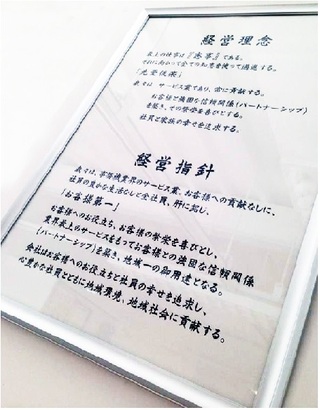 経営理念
最上の仕事は『志事』である。
それに向かって全ての知恵を使って邁進する。
我々は、サービス業であり、常に貢献する。
お客様と強固な信頼関係(パートナーシップ)
を築き、その繁栄を喜びとする。
社員と家族の幸せを追求する。
経営指針
我々は、事務機業界のサービス業、お客様への貢献なしに、
社員の豊かな生活なしと全社員、肝に銘じ、
「お客様第一」
お客様へのお役立ち、お客様の繁栄を喜びとし、
業界最上のサービスをもってお客様との強固な信頼関係
(パートナーシップ)を築き、地域一の御用達となる。
会社はお客様へのお役立ちと社員の幸せを追求し、
心豊かな社員とともに地域発見、地域社会に貢献する。